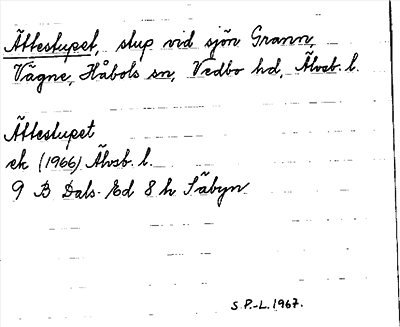 Ättestupet, stup vid sjön Grann,
Vägne, Håbols sn, Vedbo hd, Älvsb. l.
Ättestupet
ek (1966) Älvsb. l.
9 B Dals-Ed 8 h Säbyn
S.P.-L. 1967.